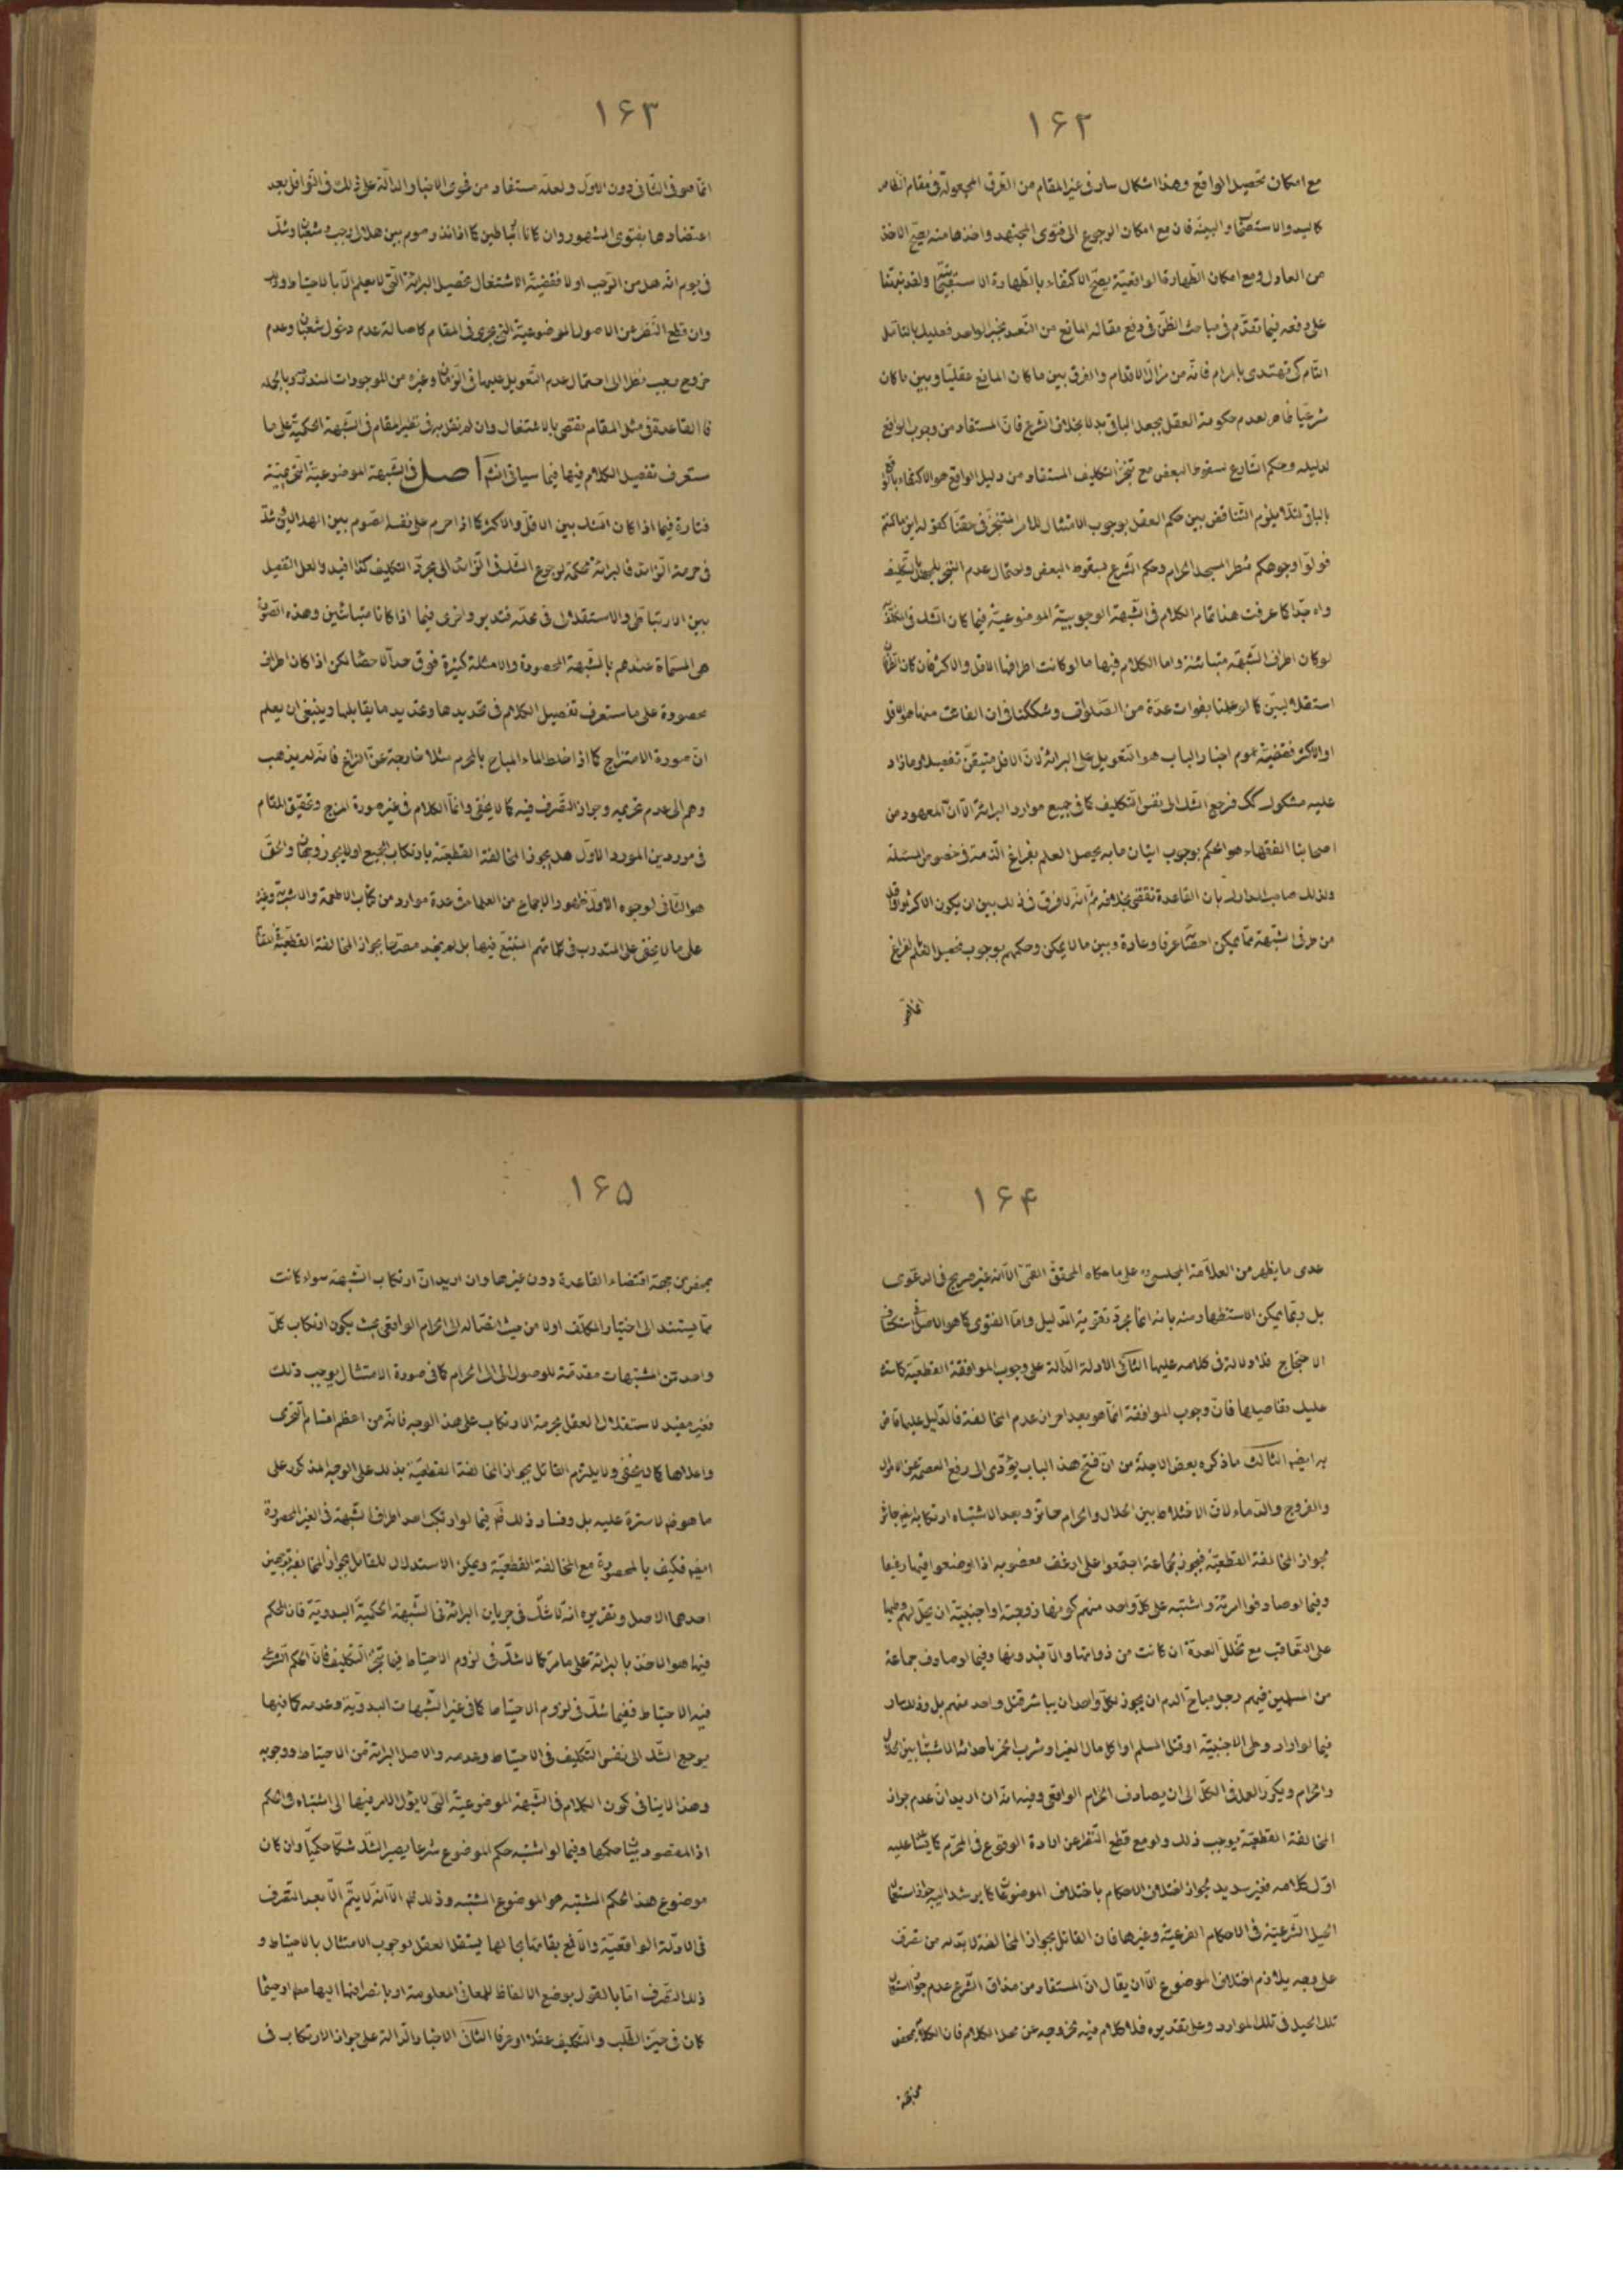 ۱۶۲
مع امكان تحصيل الواقع وهذا اشكال سار فى غير المقام من الطرق المجعولة فى مقام الظاهر
كاليد والاستصحاب والبينة فان مع امكان الرجوع الى فتوى المجتهد واخذها منه يصح الاخذ
من العادل ومع امكان الطهارة الواقعية يصح الاكتفاء بالطهارة الاستصحابية ولقد نبهتنا
على دفعه فيما تقدم فى مباحث الظن فى دفع مقالة المانع من التعبد بخبر الواحد فعليك بالتامل
التام كى تهتدى بالمرام فانه من مزال الاقدام والفرق بين ما كان المانع عقليا وبين ما كان
شرعيا ظاهر لعدم حكومة العقل بجعل الباقى بدلا بخلاف الشرع فان المستفاد من وجوب الواقع
لدليله وحكم الشارع بسقوط البعض مع تنجز التكليف المستفاد من دليل الواقع هو الاكتفاء
بالباقى لئلا يلزم التناقض بين حكم العقل بوجوب الامتثال للامر المتنجز فى حقنا كقوله اين ما كنتم
فولوا وجوهكم شطر المسجد الحرام وحكم الشرع بسقوط البعض واحتمال عدم التنجز للجهل بالتكليف
واه جدا كما عرفت هذا تمام الكلام فى الشبهة الوجوبية الموضوعية فيما كان الشك فى المكلف به
لو كان اطراف الشبهة متباينة واما الكلام فيها ما لو كانت اطرافها الاقل والاكثر فان كان
استقلاليين كما لو علمنا بفوات عدة من الصلوات وشككنا فى ان الفائت منها هو الاقل
او الاكثر فقضية عموم اخبار الباب هو التعويل على البرائة لان الاقل متيقن تفصيلا وما زاد
عليه مشكوك كك فرجع الشك الى نفس التكليف كما فى جميع موارد البرائة الا ان المعهود من
اصحابنا الفقهاء هو الحكم بوجوب اتيان ما به يحصل العلم بفراغ الذمة فى خصوص المسئلة
ولذلك صاحب المدارك بان القاعدة تقتضى بخلافه ثم انه لا فرق فى ذلك بين ان يكون الاكثر والاقل
من طرفى الشبهة مما يمكن احصائها عرفا وعادة وبين ما لا يمكن وحكمهم بوجوب تحصيل العلم بالفراغ
انما هو
۱۶۳
انما هو فى الثانى دون الاول ولعله مستفاد من فحوى الاخبار الدالة على ذلك فى النوافل بعد
اعتضادها بفتوى المشهور وان كانا ارتباطيين كما اذا نذر صوم بين هلال رجب وشعبان وشك
فى يوم انه هل من الرجب او لا فقضية الاشتغال تحصيل البرائة التى لا يعلم الا بالاحتياط
وان قطع النظر عن الاصول الموضوعية التى يجرى فى المقام كاصالة عدم دخول شعبان وعدم
خروج رجب نظرا الى احتمال عدم التعويل عليها فى الزمان وغيره من الموجودات المتدرجة وبالجملة
فالقاعدة فى مثل المقام تقتضى بالاشتغال وان لم نقل به فى نظير المقام فى الشبهة الحكمية على ما
ستعرف تفصيل الكلام فيها فيما سياتى انشاء اصل فى الشبهة الموضوعية التحريمية
فتارة فيما اذا كان الشك بين الاقل والاكثر كما اذا حرم على نفسه الصوم بين الهلالين وشك
فى حرمة الزائد فالبرائة محكمة لرجوع الشك فى الزائد الى مجرد التكليف كذا افيد ولعل التفصيل
بين الارتباطى والاستقلال فى محله فتدبر واخرى فيما اذا كانا متباينين وهذه الصورة
هى المسماة عندهم بالشبهة المحصورة والامثلة كثيرة فوق حد الاحصاء لكن اذا كان اطراف
محصورة على ما ستعرف تفصيل الكلام فى تحديدها وتحديد ما يقابلها وينبغى ان يعلم
ان صورة الامتزاج كما اذا خلط الماء المباح بالمحرم مثلا خارجة عن النزاع فانه لم يذهب
وهم الى عدم تحريمه وجواز التصرف فيه كما لا يخفى وانما الكلام فى غير صورة المزج وتحقيق المقام
فى موردين المورد الاول هل يجوز المخالفة القطعية بارتكاب الجميع او لا يجوز وجهان والحق
هو الثانى لوجوه الاول ظهور الاجماع من العلماء فى عدة موارد من كتاب الاطعمة والاشربة وغيره
على ما لا يخفى على المتدرب فى كلماتهم المتتبع فيها بل لم يجد مصرحا بجواز المخالفة القطعية
۱۶۴
عدى ما يظهر من العلامة المجلسى ره على ما حكاه المحقق القمى الا انه غير صريح فى الدعوى
بل ربما يمكن الاستظهار منه بانه انما بمجرد تقوية الدليل واما الفتوى كما هو الاصل فى
الاحتجاج فلا دلالة فى كلامه عليها الثانى الادلة الدالة على وجوب الموافقة القطعية كما سنتلو
عليك تفاصيلها فان وجوب الموافقة انما هو بعد احراز عدم المخالفة فالدليل عليها قاض
به ايضا الثالث ما ذكره بعض الاجلة من ان فتح هذا الباب يؤدى الى رفع العصمة عن الاموال
والفروج والدماء لان الاختلاط بين الحلال والحرام جائز وبعد الاشتباه ارتكابه ايضا جائز
بجواز المخالفة القطعية فيجوز لجماعة اجتمعوا على ارغف مغصوبه اذا وضعوا فيها رغيفا
وفيما لو صادفوا امرئة واشتبه على كل واحد منهم كونها زوجية او اجنبية ان يحل لهم وطيها
على التعاقب مع تخلل العدة ان كانت من ذواتها والا فبدونها وفيما لو صادف جماعة
من المسلمين فيهم رجل مباح الدم ان يجوز لكل واحد ان يباشر قتل واحد منهم بل وذلك سار
فيما لو اراد وطى الاجنبية او قتل المسلم او اكل مال الغير او شرب الخمر باحداث الاشتباه بين الحلال
والحرام ويكرر العمل فى الكل الى ان يصادف الحرام الواقعى وفيه انه ان اريد ان عدم جواز
المخالفة القطعية يوجب ذلك ولو مع قطع النظر عن ارادة الوقوع فى المحرم كما ينبئ عليه
اول كلامه فغير سديد لجواز اختلاف الاحكام باختلاف الموضوعات كما يرشد اليه جواز استعمال
الحيل الشرعية فى الاحكام الفرعية وغيرها فان القائل بجواز المخالفة لا بد له من تصرف
على وجه يلازم اختلاف الموضوع الا ان يقال ان المستفاد من مذاق الشرع عدم جواز استعمال
تلك الحيل فى تلك الموارد وعلى تقديره فلا كلام فيه لخروجه عن محل الكلام فان الكلام
۱۶۵
من جهة اقتضاء القاعدة دون غيرها وان اريد ان ارتكاب الشبهة سواء كانت
مما يستند الى اختيار المكلف او لا من حيث ايصاله الى الحرام الواقعى بحيث يكون ارتكاب كل
واحد من المشتبهات مقدمة للوصول الى الحرام كما فى صورة الامتثال يوجب ذلك
فغير مفيد لاستقلال العقل بحرمة الارتكاب على هذا الوجه فانه من اعظم اقسام التجرى
واعلاها كما لا يخفى ولا يلتزم القائل بجواز المخالفة القطعية بذلك على الوجه المذكور على
ما هو ظم لا سترة عليه بل وفساد ذلك ثم فيما لو ارتكب احد اطراف الشبهة فى الغير المحصورة
ايضا فكيف بالمحصورة مع المخالفة القطعية ويمكن الاستدلال للقائل بجواز المخالفة بوجهين
احدهما الاصل وتقريره انه لا شك فى جريان البرائة فى الشبهة الحكمية البدوية فان الحكم
فيها هو الاخذ بالبرائة على ما مر كما لا شك فى لزوم الاحتياط فيما تنجز التكليف فان الحكم الشرعى
فيه الاحتياط ففيما شك فى لزوم الاحتياط كما فى غير الشبهات البدوية وعدمه كما فيها
يرجع الشك الى نفس التكليف فى الاحتياط وعدمه والاصل البرائة من الاحتياط ووجوبه
وهذا لا ينافى كون الكلام فى الشبهة الموضوعية التى لا يؤل الامر فيها الى اشتباه فى الحكم
اذ المقصود بيان حكمها وفيما لو اشتبه حكم الموضوع شرعا يصير الشك شكا حكميا وان كان
موضوع هذا الحكم المشتبه هو الموضوع المشتبه وذلك ظم الا انه لا يتم الا بعد التصرف
فى الادلة الواقعية والا فمع بقائها بحالها يستقل العقل بوجوب الامتثال بالاحتياط و
ذلك التصرف اما بالقول بوضع الالفاظ للمعانى المعلومة او بانصرافها اليها مط او حيثما
كان فى حيز الطلب والتكليف عقلا او عرفا الثانى الاخبار الدالة على جواز الارتكاب ف